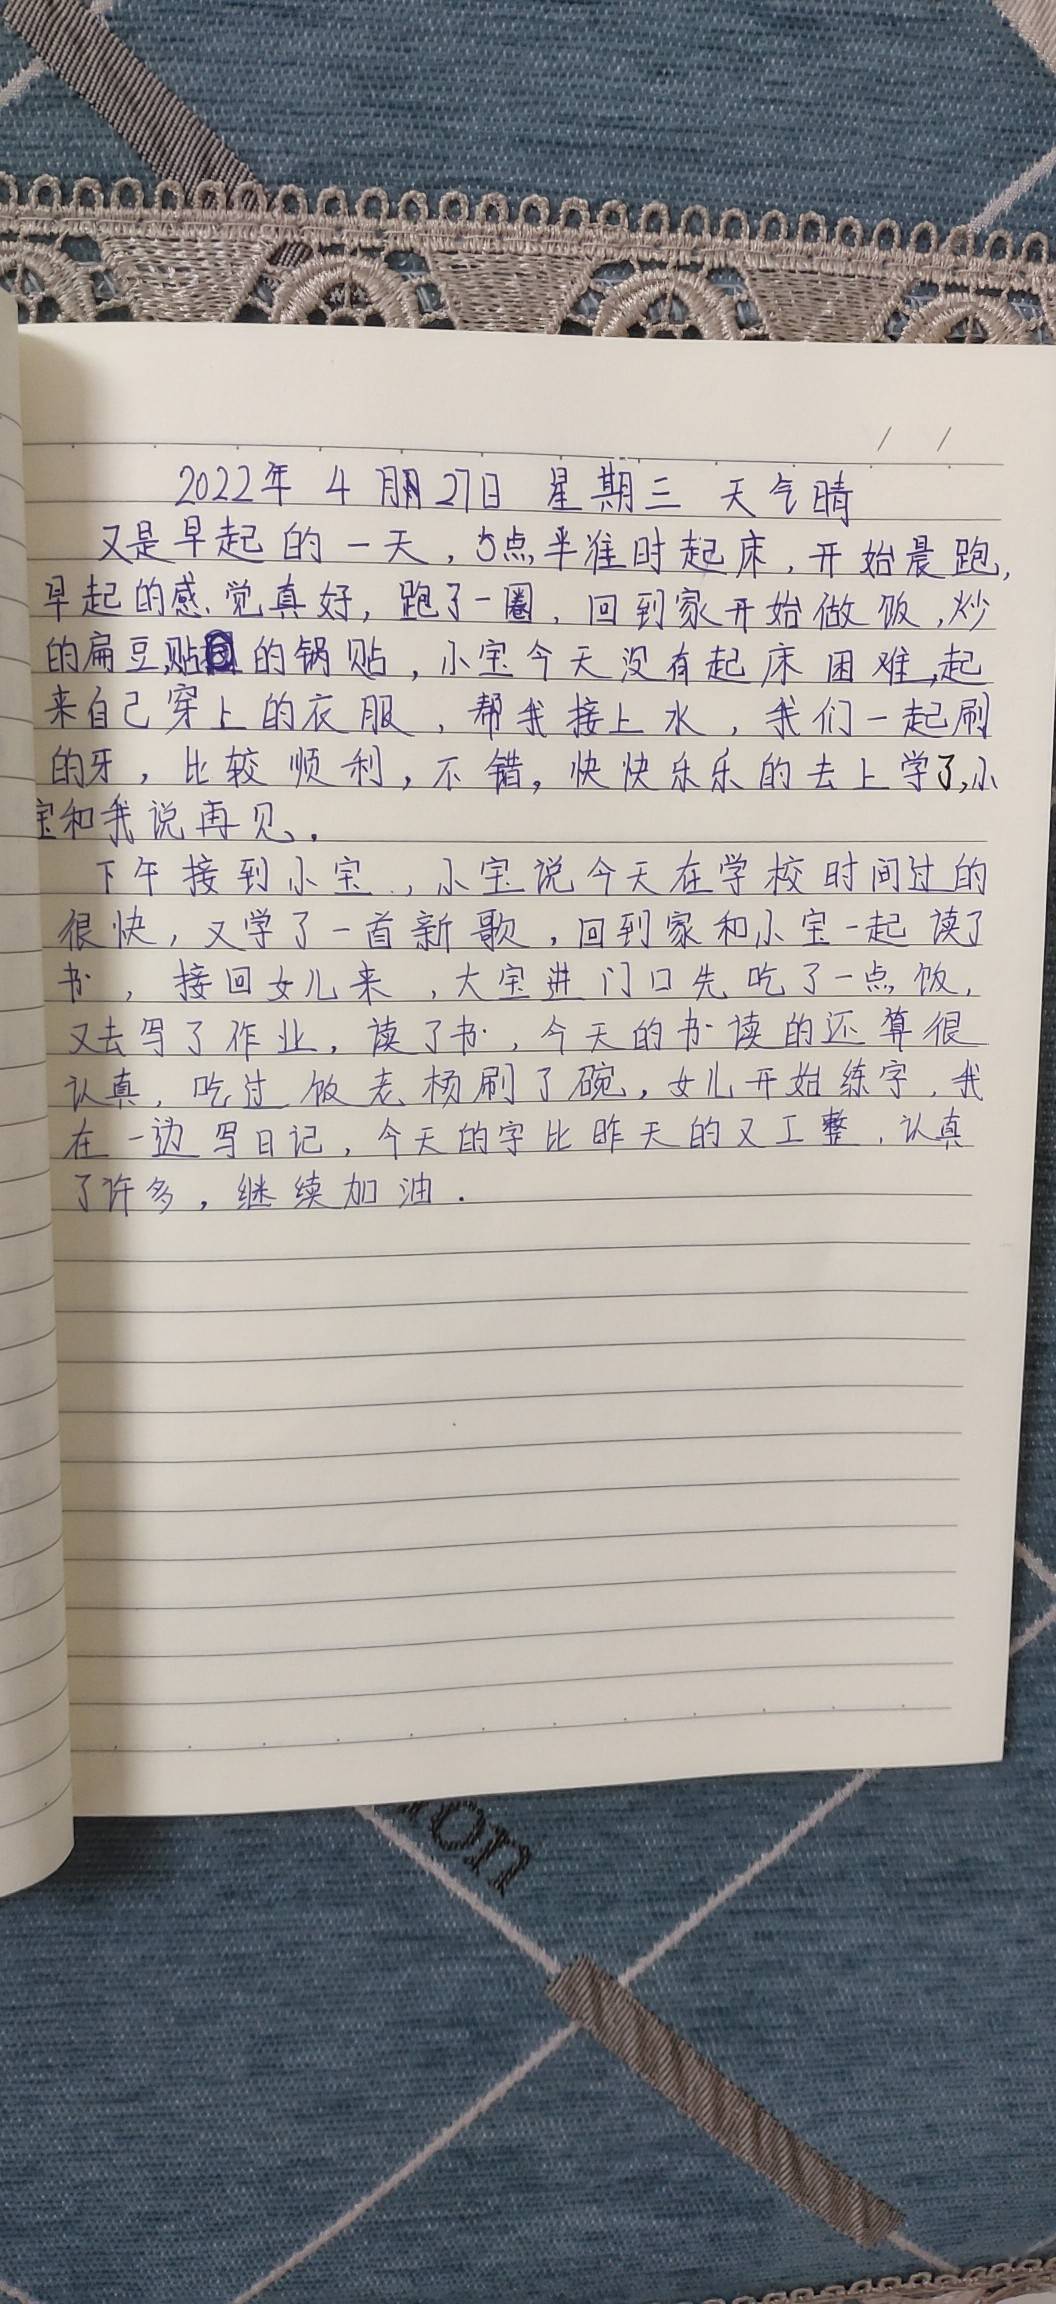 2022年 4月27日 星期三 天气晴
又是早起的一天,5点半准时起床,开始晨跑,
早起的感觉真好,跑了一圈,回到家开始做饭,炒
的扁豆,贴的锅贴,小宝今天没有起床困难,起
来自己穿上的衣服,帮我接上水,我们一起刷
的牙,比较顺利,不错,快快乐乐的去上学了,小
宝和我说再见.
下午接到小宝.,小宝说今天在学校时间过的
很快,又学了一首新歌,回到家和小宝一起读了
书,接回女儿来,大宝进门口先吃了一点饭,
又去写了作业,读了书,今天的书读的还算很
认真,吃过饭老杨刷了碗,女儿开始练字,我
在一边写日记,今天的字比昨天的又工整,认真
了许多,继续加油.
on